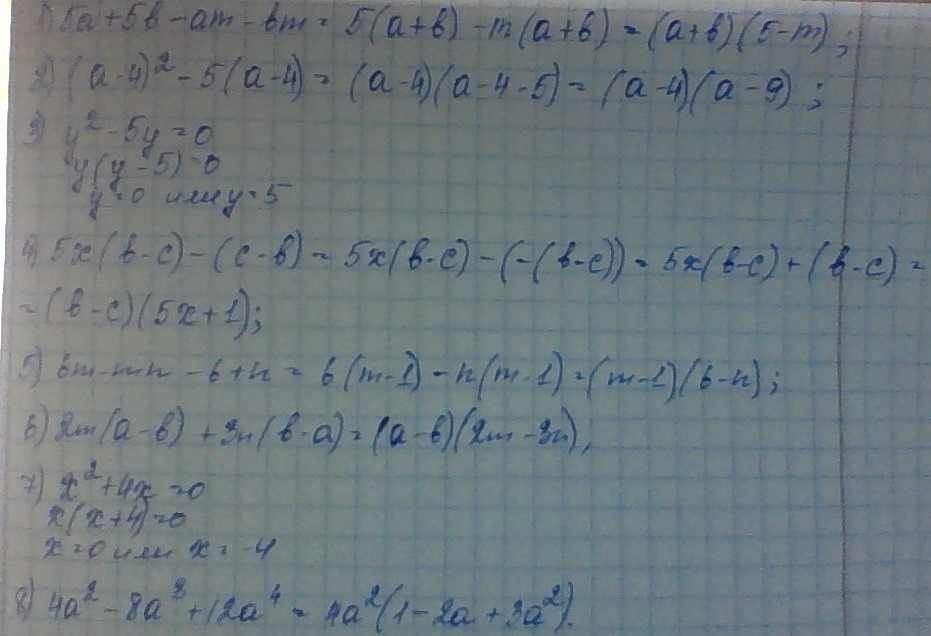 1) 5a+5в-am-вm = 5(a+в)-m(a+в) = (a+в)(5-m);
2) (a-4)²-5(a-4) = (a-4)(a-4-5) = (a-4)(a-9);
3) y²-5y=0
y(y-5)=0
y=0 или y=5
4) 5x(в-c)-(c-в) = 5x(в-c)-(-(в-c)) = 5x(в-c)+(в-c) =
=(в-c)(5x+1);
5) 6m-mn-6+n = 6(m-1)-n(m-1)=(m-1)(6-n);
6) 2m(a-в)+3n(в-a)=(a-в)(2m-3n);
7) x²+4x=0
x(x+4)=0
x=0 или x=-4
8) 4a²-8a³+12a⁴ = 4a²(1-2a+3a²).